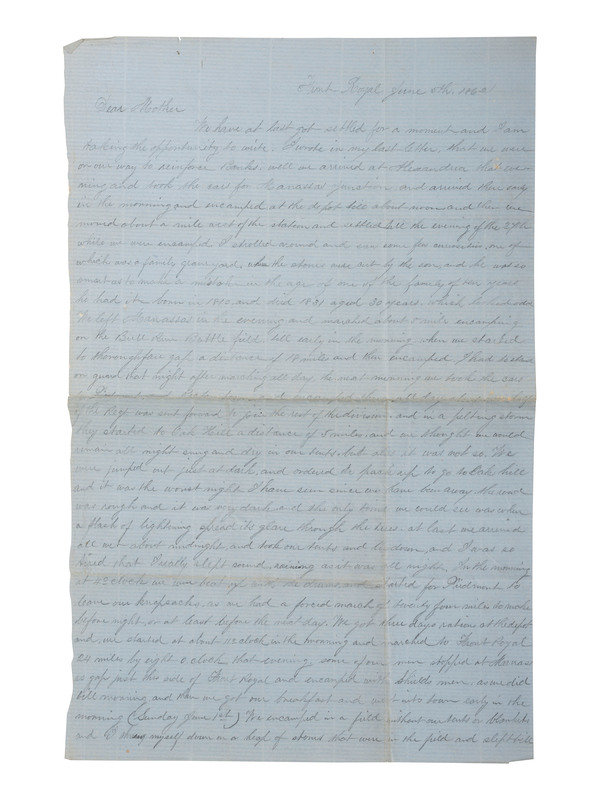 Front Royal June 5th, 1862
Dear Mother
We have at last got settled for a moment and I am
taking the opportunity to write. I wrote in my last letter, that we were
on our way to reinforce Banks. well we arrived at Alexandria that eve
ning and took the cars for Manassas junction and arrived there early
in the morning and encamped at the depot till about noon and then we
moved about a mile west of the station and settled till the evening of the 29th
while we were encamped I strolled around and seen some few curiosities, one of
which was a family grave yard, the stones were cut by the son, and he was so
smart as to make a mistake in the age of one of the family of ten years
he had it born in 1810 and died 1851 aged 30 years, which
We left Manassas in the evening and marched about 5 mile encamping
on the Bull Run Battle field till early in the morning when we started
to thoroughfare gap a distance of miles and then encamped. I had to stand
on guard that night after marching all day, the next morning we took the cars
and encamped there all day
of the Regt was sent forward to join the rest of the division and in a pelting storm
they started to Oak Hill a distance of 5 miles, and we thought we would
remain all night snug and dry in our tents, but alas it was not so. We
were jumped out just at dark and ordered to pack up to go to Oak hill
and it was the worst night I have seen since we have ben away the road
was rough and it was very dark and the only time we could see was when
a flash of lightning spread its glare through the trees. at last we arrived
all wet about midnight, and took our tents and lie down, and I was so
tired that I really slept sound, raining as it was all night. In the morning
at oclock we were beat up with the drums and started for Piedmont to
leave our knapsacks, as we had a forced march of twenty four miles to make
before night, or at least before the next day. We got three days ration at the depot
and we started at about 11 oclock in the morning and marched to Front Royal
24 miles by eight oclock that evening, some of our men stopped at Manass
as gap just this side of Front Royal and encamped with Shields men, as we did
till morning and then we got our breakfast and went into town early in the
morning (Sunday June 1st) We encamped in a field without our tents or blankets
and I threw myself down in a heap of stones that were in the field and slept till